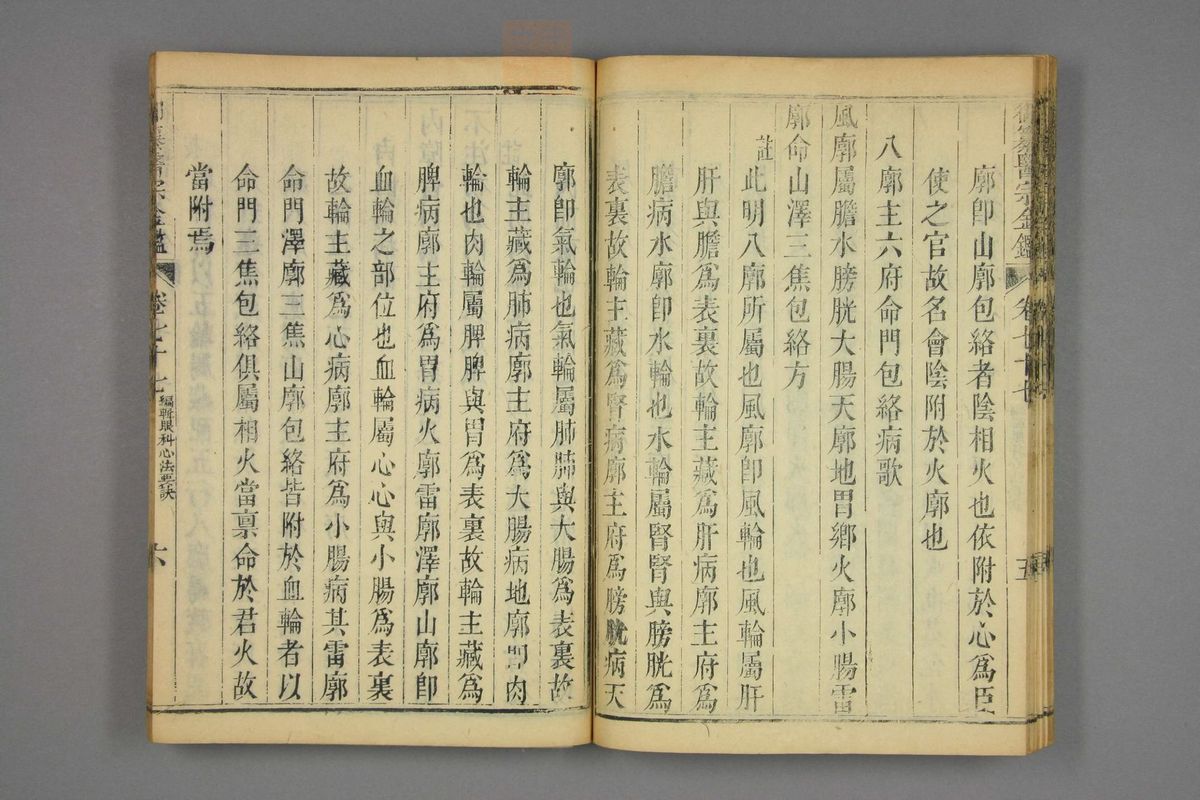 御纂醫宗金鑑 卷七十七 五
廓卽山廓包絡者陰相火也依附於心爲臣
使之官故名會陰附於火廓也
八廓主六府命門包絡病歌
風廓屬膽水膀胱大腸天廓地胃鄉火廓小腸雷
廓命山澤三焦包絡方
註
此明八廓所屬也風廓卽風輪也風輪屬肝
肝與膽爲表裏故輪主藏爲肝病廓主府爲
膽病水廓卽水輪也水輪屬腎腎與膀胱爲
表裏故輪主藏爲腎病廓主府爲膀胱病天
廓卽氣輪也氣輪屬肺肺與大腸爲表裏故
輪主藏爲肺病廓主府爲大腸病地廓卽肉
輪也肉輪屬脾脾與胃爲表裏故輪主藏爲
脾病廓主府爲胃病火廓雷廓澤廓山廓卽
血輪之部位也血輪屬心心與小腸爲表裏
故輪主藏爲心病廓主府爲小腸病其雷廓
命門澤廓三焦山廓包絡皆附於血輪者以
命門三焦包絡俱屬相火當禀命於君火故
當附焉
御纂醫宗金鑑 卷七十七 編輯眼科心法要訣 六